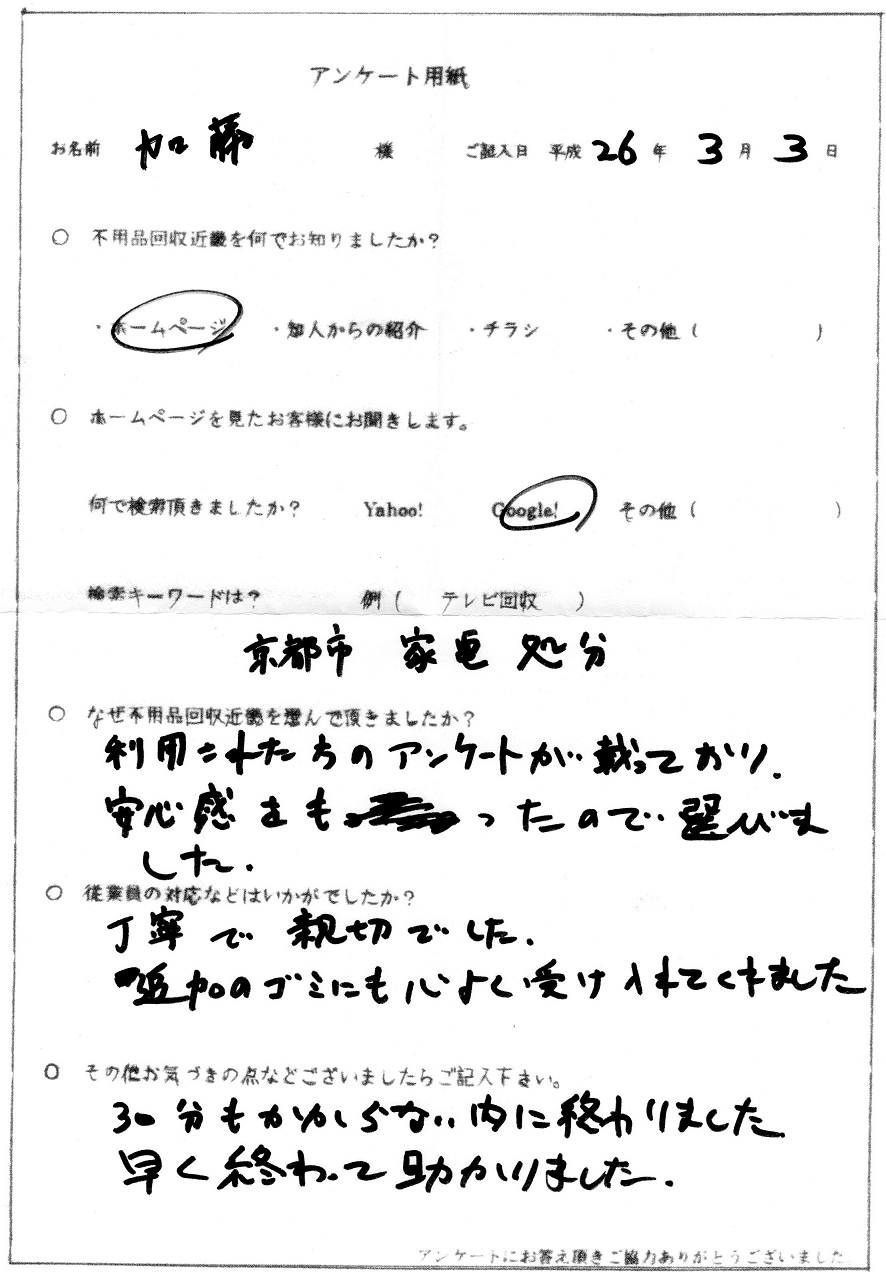 アンケート用紙
お名前 加藤 様 ご記入日 平成 26 年 3 月 3 日
○ 不用品回収近畿を何でお知りましたか?
・ホームページ ・知人からの紹介 ・チラシ ・その他 ( )
○ ホームページを見たお客様にお聞きします。
何で検索頂きましたか? Yahoo! Google! その他 ( )
検索キーワードは? 例 ( テレビ回収 )
京都市 家電 処分
○ なぜ不用品回収近畿を選んで頂きましたか?
利用された方のアンケートが載っており、
安心感をも ったので選びま
した。
○ 従業員の対応などはいかがでしたか?
丁寧で親切でした。
追加のゴミにも心よく受け入れてくれました
○ その他お気づきの点などございましたらご記入下さい。
30分もかからない内に終わりました。
早く終わって助かりました。
アンケートにお答え頂きご協力ありがとうございました。